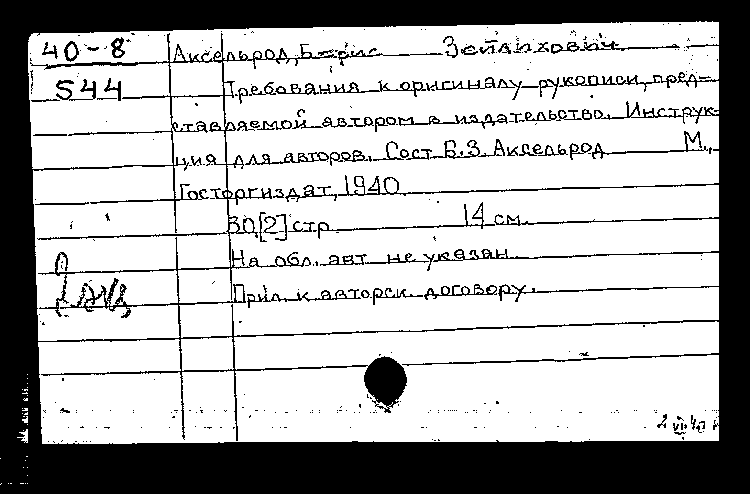 40-8 Аксельрод, Борис Зейлихович
544 Требования к оригиналу рукописи, пред=
ставляемой автором в издательство. Инструк-
ция для авторов. Сост Б.З. Аксельрод М.,
Госторгиздат, 1940
30[2] стр 14 см.
На обл. авт не указан
2 экз
Прил. к авторск договору.
2 VII 40